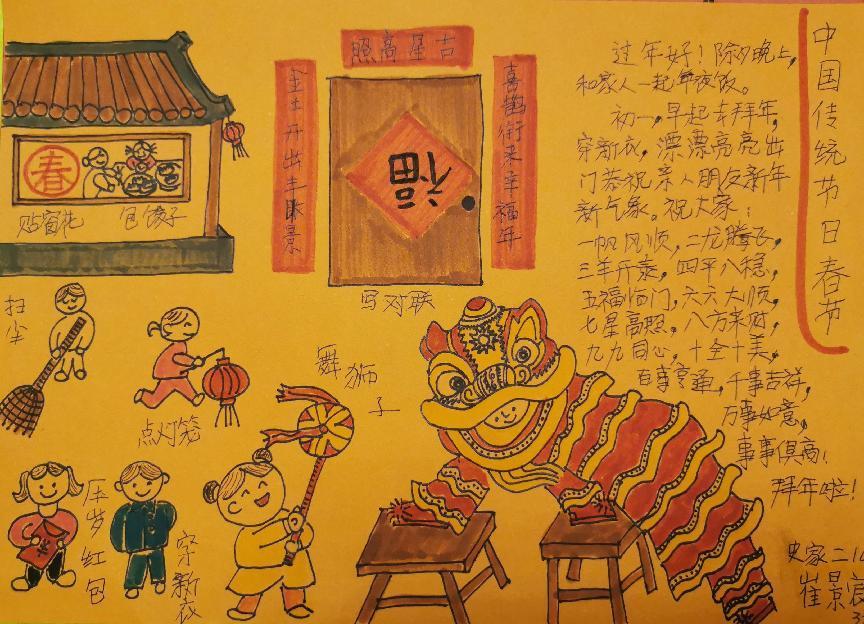 中国传统节日春节
过年好！除夕晚上，
和家人一起年夜饭。
初一，早起去拜年，
穿新衣，漂漂亮亮出
门恭祝亲人朋友新年
新气象。祝大家：
一帆风顺，二龙腾飞，
三羊开泰，四平八稳，
五福临门，六六大顺，
七星高照，八方来财，
九九同心，十全十美，
百事亨通，千事吉祥，
万事如意，
事事俱高！
拜年啦！
史家二
崔景宸
吉星高照
喜鹊衔来幸福年
金土开出丰景
福
写对联
春
贴窗花
包饺子
扫尘
点灯笼
舞狮子
压岁红包
穿新衣